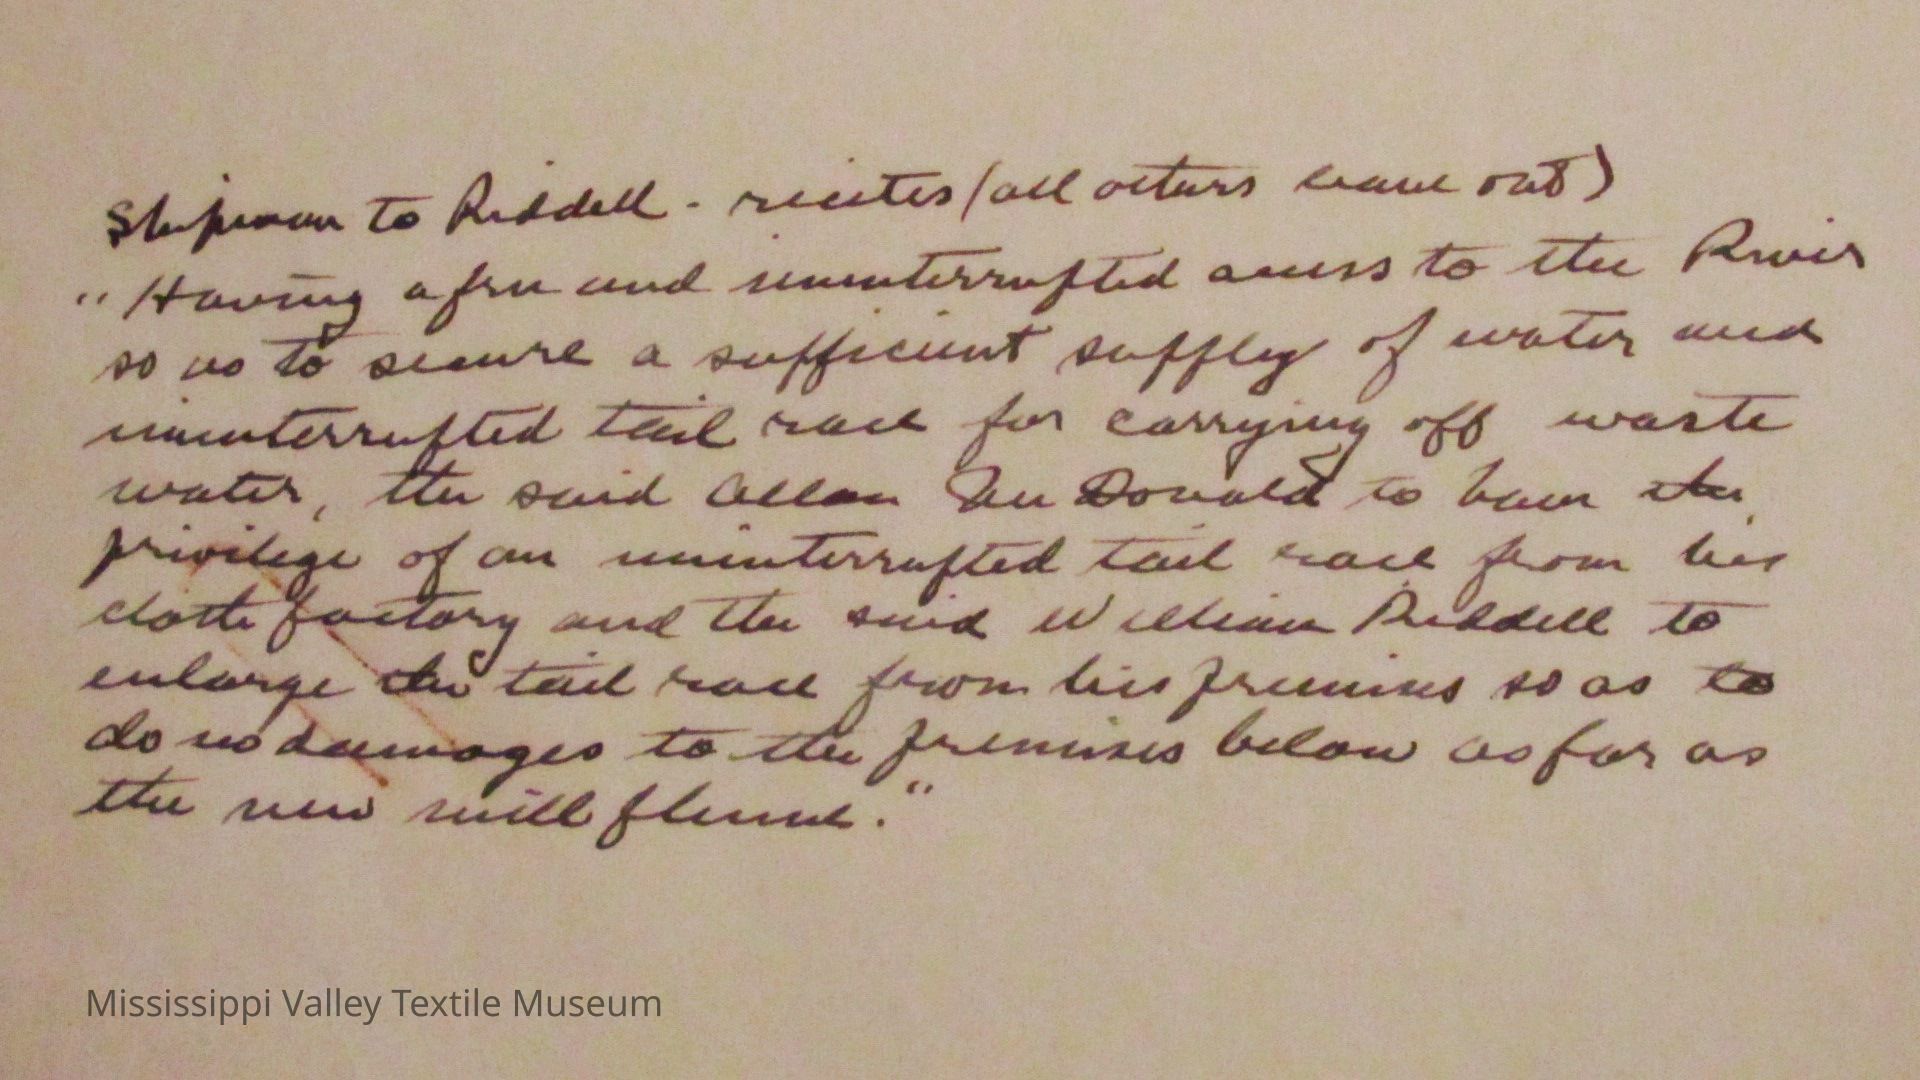 Shipman to Riddell - recites (all others leave out)
"Having a free and uninterrupted access to the River
so as to secure a sufficient supply of water and
uninterrupted tail race for carrying off waste
water, the said Allan McDonald to have the
privilege of an uninterrupted tail race from his
cloth factory and the said William Riddell to
enlarge the tail race from his premises so as to
do no damages to the premises below as far as
the new mill flume."
Mississippi Valley Textile Museum